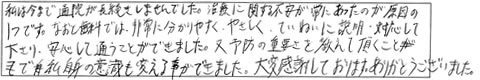 私は今まで通院が長続きしませんでした。治療に関する不安が常にあったのが原因の
1つです。なおし歯科では、非常に分かりやすく、やさしく、ていねいに説明・対応して
下さり、安心して通うことができました。又予防の重要さも教えて頂くことが
でき私自身の意識も変える事ができました。大変感謝しております。ありがとうございました。